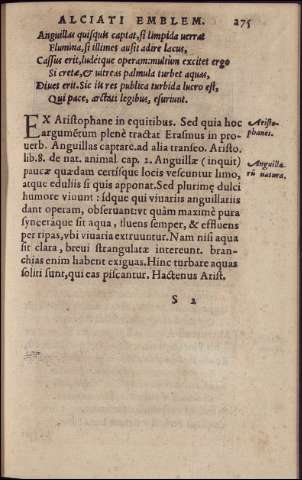 ALCIATI EMBLEM. 275
Anguillas quisquis captat, si limpida verrat
Flumina, si illimes ausit adire lacus,
Cassus erit, ludetque operam: multum excitet ergo
Si cretæ, & vitreas palmula turbet aquas,
Dives erit. Sic iis res publica turbida lucro est,
Qui pace, arctati legibus, esuriunt.
EX Aristophane in equitibus. Sed quia hoc
argumẽtum plenè tractat Erasmus in pro-
uerb. Anguillas captare. ad alia transeo. Aristo.
lib. 8. de nat. animal cap. 2. Anguillæ (inquit)
paucæ quædam certisque locis vescuntur limo,
atque eduliis si quis apponat. Sed plurimę dulci
humore viuunt: idque qui viuariis anguillariis
dant operam, obseruant: vt quàm maximè pura
synceraque sit aqua, fluens semper, & effluens
per ripas, vbi viuaria extruuntur. Nam nisi aqua
sit clara, breui strangulatæ intereunt. bran-
chias enim habent exiguas. Hinc turbare aquas
soliti sunt, qui eas piscantur. Hactenus Arist.
Aristo-
phanes.
Anguilla-
rũ natura.
S 2